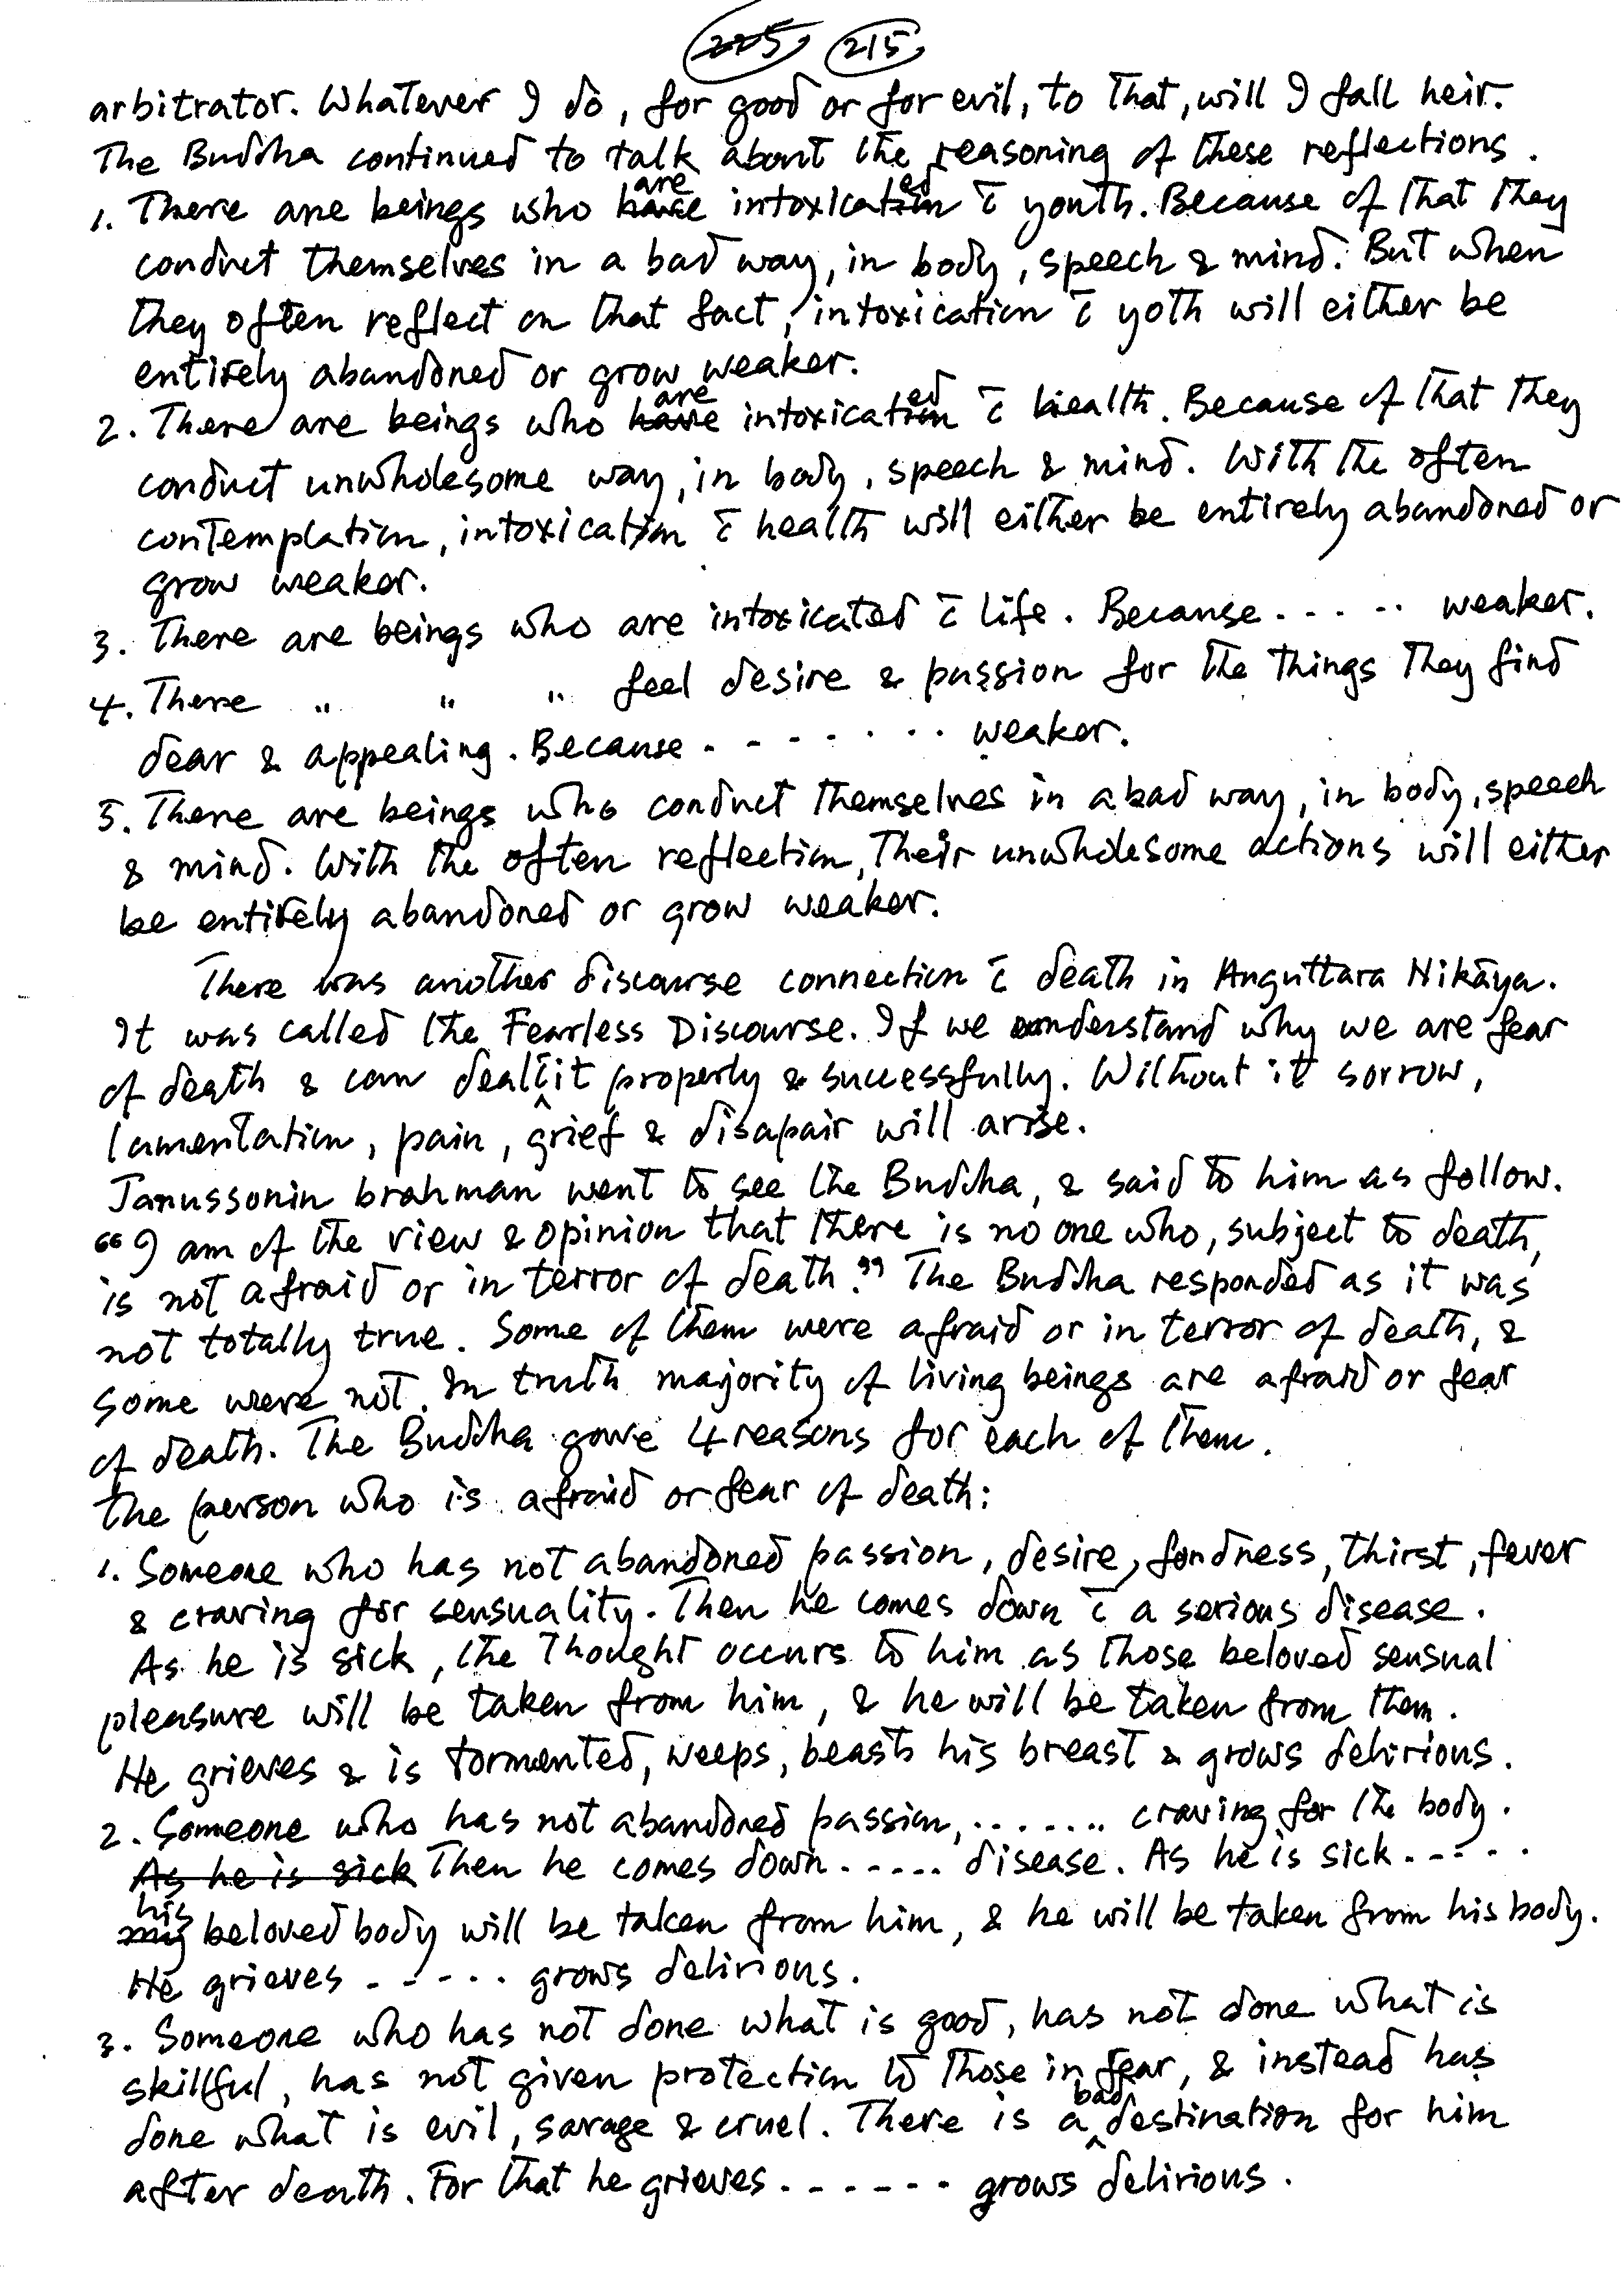 225 215
arbitrator. Whatever I do, for good or for evil, to that, will I fall heir.
The Buddha continued to talk about the reasoning of these reflections.
1. There are beings who are intoxicated c̄ youth. Because of that they
conduct themselves in a bad way, in body, speech & mind. But when
they often reflect on that fact, intoxication c̄ yoth will either be
entirely abandoned or grow weaker.
2. There are beings who are intoxicated c̄ health. Because of that they
conduct unwholesome way, in body, speech & mind. With the often
contemplation, intoxication c̄ health will either be entirely abandoned or
grow weaker.
3. There are beings who are intoxicated c̄ life. Because ..... weaker.
4. There " " " feel desire & passion for the things they find
dear & appealing. Because ........ weaker.
5. There are beings who conduct themselves in a bad way, in body, speech
& mind. With the often reflection, their unwholesome actions will either
be entirely abandoned or grow weaker.
There was another discourse connection c̄ death in Anguttara Nikāya.
It was called the Fearless Discourse. If we understand why we are fear
of death & can deal c̄ it properly & successfully. Without it sorrow,
lamentation, pain, grief & disapair will arise.
Janussonin brahman went to see the Buddha, & said to him as follow.
"I am of the view & opinion that there is no one who, subject to death,
is not afraid or in terror of death." The Buddha responded as it was
not totally true. Some of them were afraid or in terror of death, &
some were not. In truth majority of living beings are afraid or fear
of death. The Buddha gave 4 reasons for each of them.
The person who is afraid or fear of death:
1. Someone who has not abandoned passion, desire, fondness, thirst, fever
& craving for sensuality. Then he comes down c̄ a serious disease.
As he is sick, the thought occurs to him as those beloved sensual
pleasure will be taken from him, & he will be taken from them.
He grieves & is tormented, weeps, beasts his breast & grows delirious.
2. Someone who has not abandoned passion, ....... craving for the body.
As he is sick Then he comes down ..... disease. As he is sick .....
his beloved body will be taken from him, & he will be taken from his body.
He grieves ..... grows delirious.
3. Someone who has not done what is good, has not done what is
skillful, has not given protection to those in fear, & instead has
done what is evil, savage & cruel. There is a bad destination for him
after death. For that he grieves ...... grows delirious.